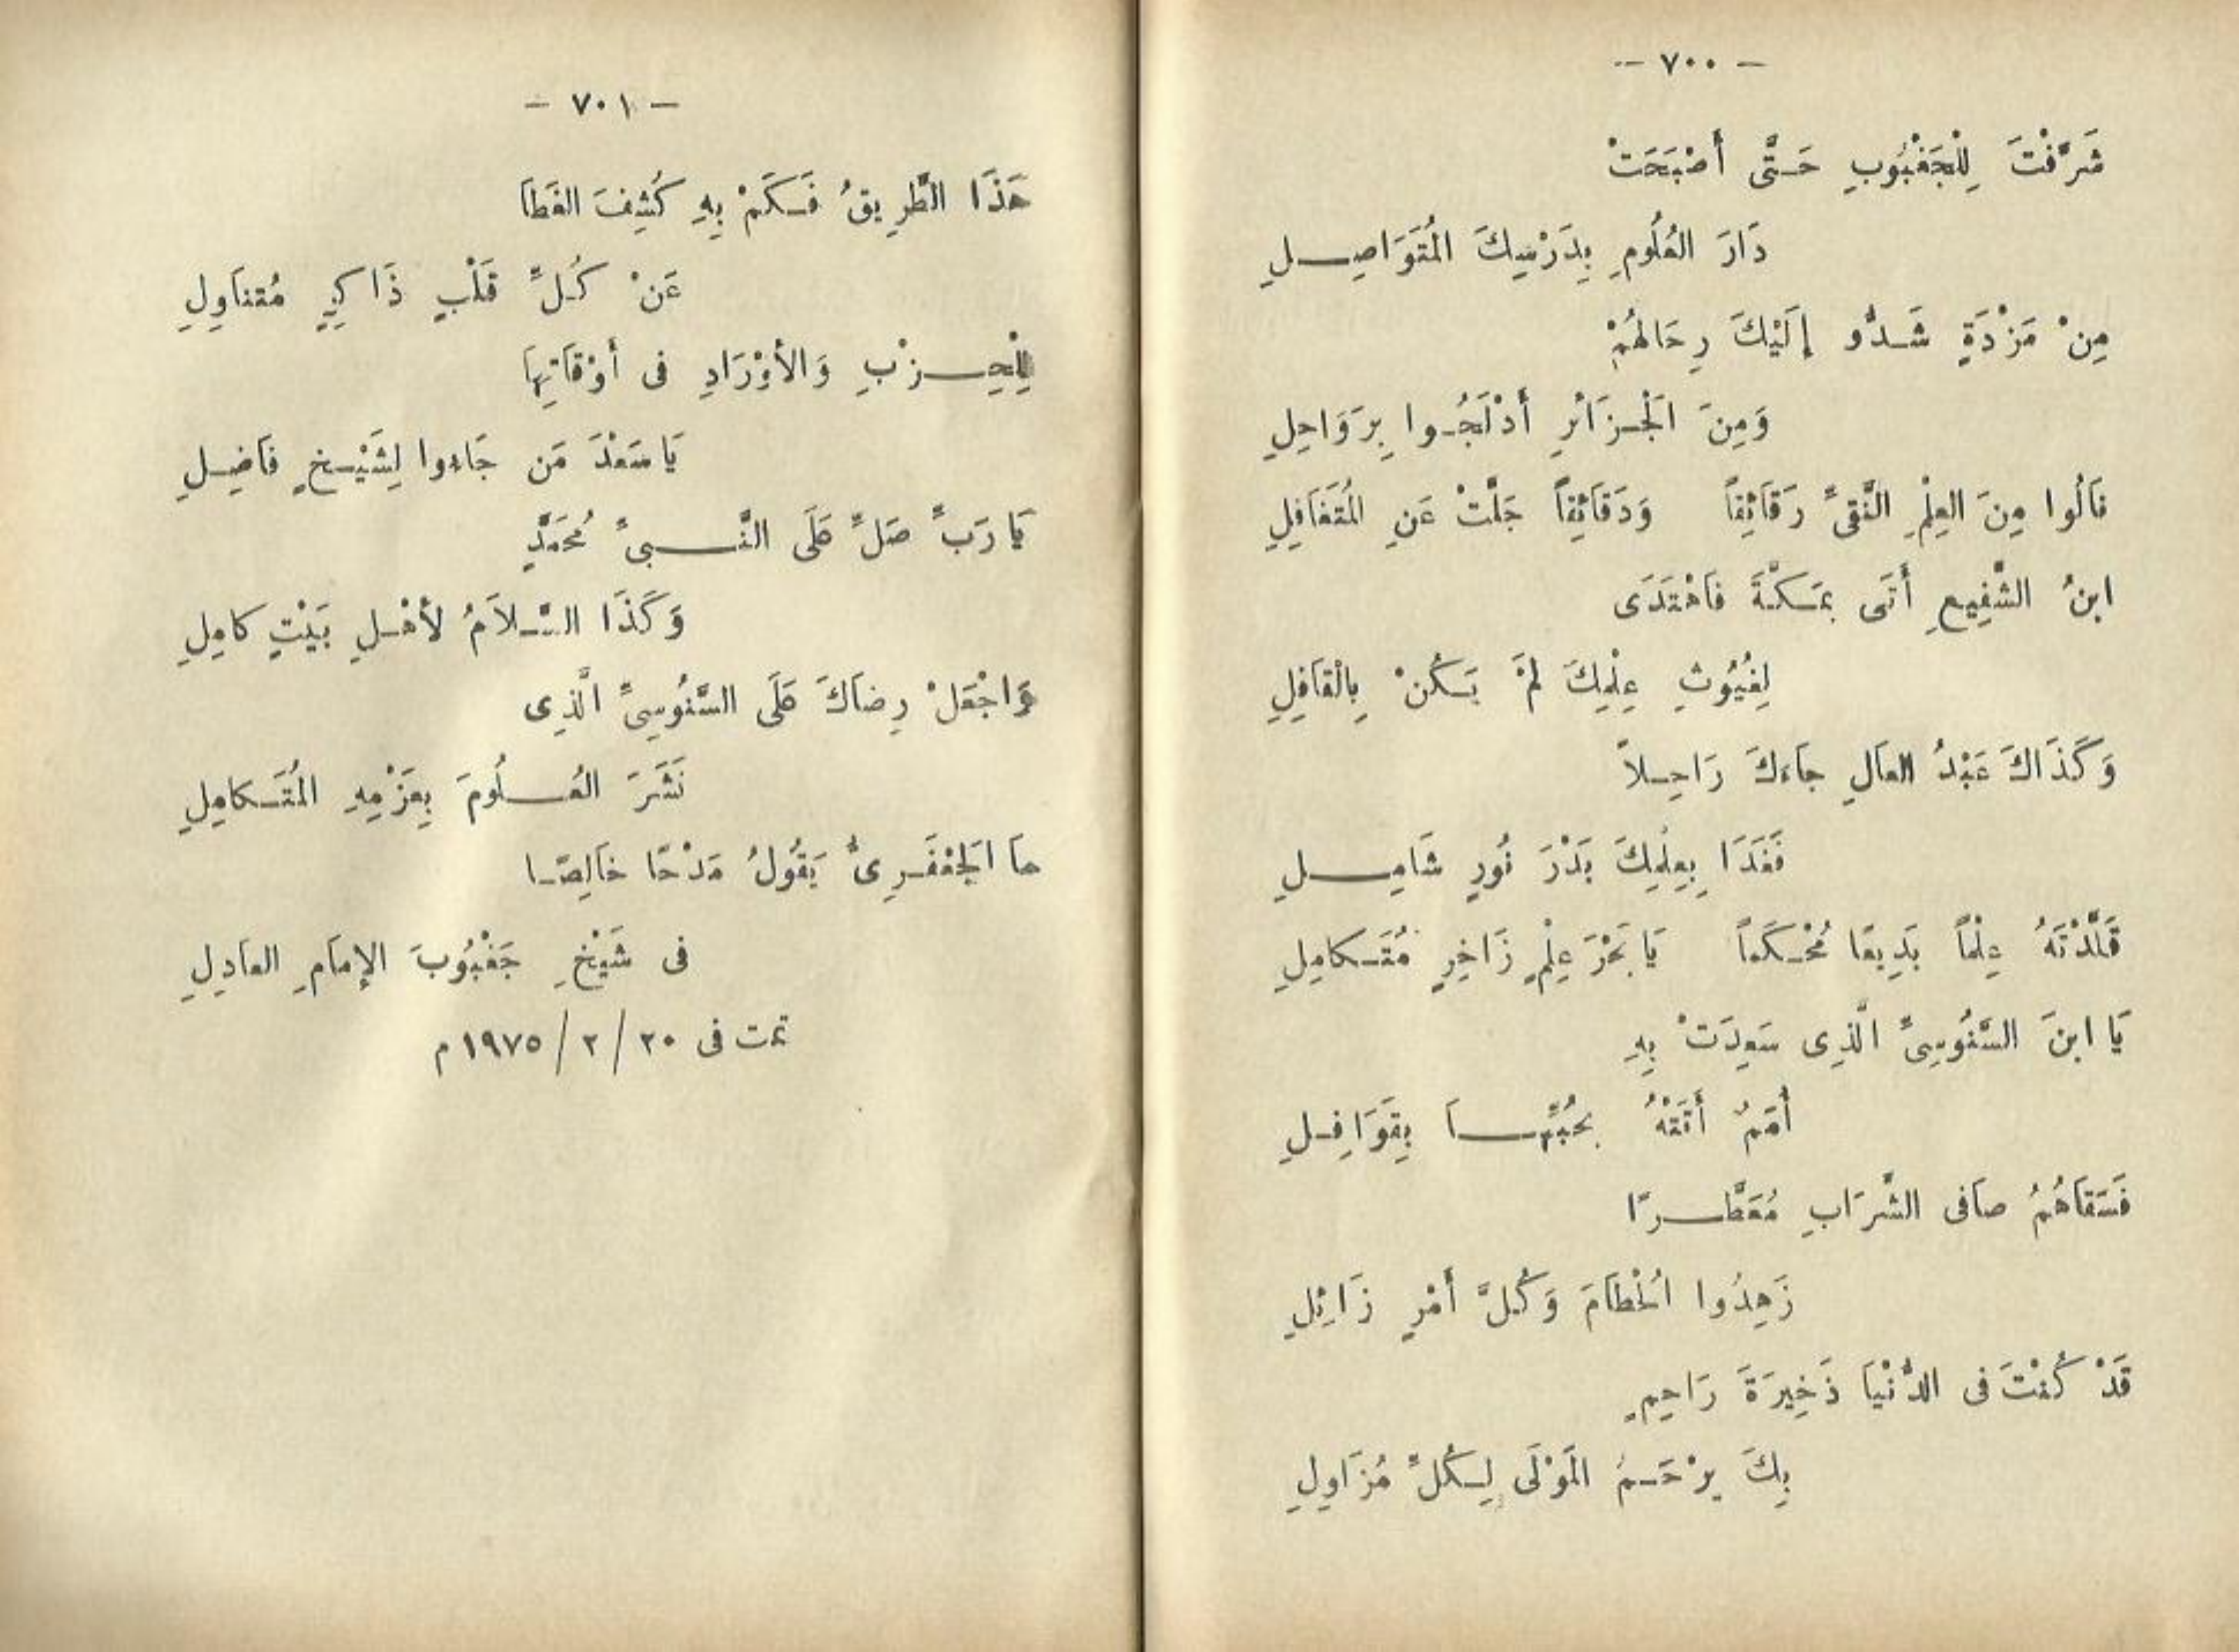 — ٧٠٠ —
شَرَّفْتَ لِلْجَغْبُوبِ حَتَّى أَصْبَحَتْ
دَارَ العُلُومِ بِدَرْسِكَ المُتَوَاصِلِ
مِنْ مَزْدَةٍ شَدُّو إِلَيْكَ رِحَالَهُمْ
وَمِنَ الْجَزَائرِ أَدْلَجُوا بِرَوَاحِلِ
نَالُوا مِنَ العِلْمِ النَّقِىِّ رَقَائِقاً وَدَقَائِقاً جَلَّتْ عَنِ المُتَغَافِلِ
ابنُ الشَّفِيعِ أَتَى بمَكَّةَ فَاهْتَدَى
لِغُيُوثِ عِلْمِكَ لَمْ يَكُنْ بِالْقَافِلِ
وَكَذَاكَ عَبْدُ العَالِ جاءَكَ رَاحِلاً
فَغَدَا بِعِلْمِكَ بَدْرَ نُورٍ شَامِلِ
قَلَّدْتَهُ عِلْماً بَدِيعًا مُحْكَماً يَا بَحْرَ عِلْمٍ زَاخِرٍ مُتَكامِلِ
يَا ابنَ السَّنُوسِىِّ الَّذِى سَعِدَتْ بِهِ
أُمَمٌ أَتَتْهُ بحُبِّهَا بِقَوَافِلِ
فَسَقَاهُمُ صاَفى الشَّرَابِ مُعَطَّرًا
زَهِدُوا الْحُطَامَ وَكُلَّ أَمْرٍ زَائِلِ
قَدْ كُنْتَ فى الدُّنْيَا ذَخِيرَةَ رَاحِمٍ
بِكَ يرْحَمُ المَوْلَى لِكُلِّ مُزَاوِلِ
— ٧٠١ —
هَذَا الطَّرِيقُ فَكَمْ بِهِ كُشِفَ الغَطَا
عَنْ كُلِّ قَلْبٍ ذَاكِرٍ مُتناَوِلِ
لِلْحِزْبِ وَالأَوْرَادِ فى أَوْقَاتِهَا
يَا سَعْدَ مَن جَاءوا لِشَيْخٍ فَاضِلِ
يَا رَبِّ صَلِّ عَلَى النَّبىِّ مُحَمَّدٍ
وَكَذَا السَّلاَمُ لأَهْلِ بَيْتٍ كامِلِ
وَاجْعَلْ رِضاَكَ عَلَى السَّنُوسِىِّ الَّذِى
نَشَرَ العُلُومَ بِعَزْمِهِ المُتَكامِلِ
ماَ الْجَعْفَرِىُّ يَقُولُ مَدْحًا خاَلِصًا
فى شَيْخِ جَغْبُوبَ الإِمَامِ العاَدِلِ
تمت فى ٢٠ / ٢ / ١٩٧٥ م